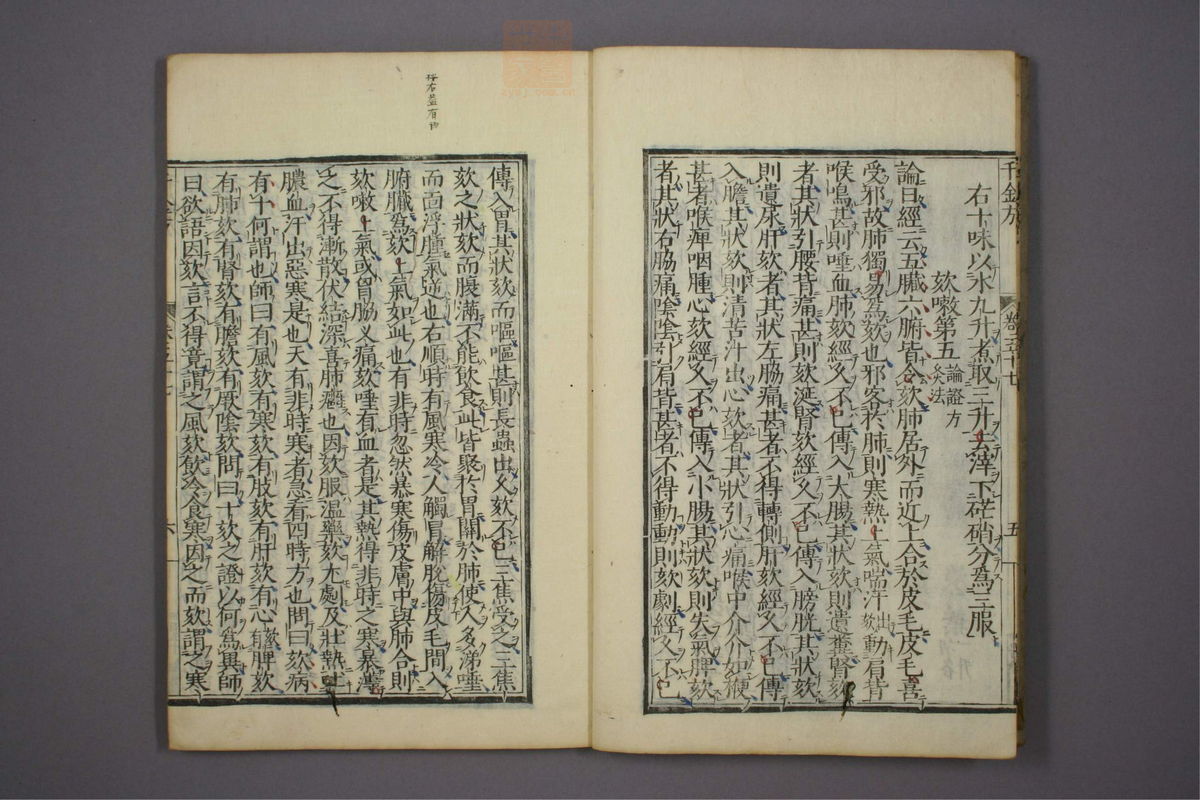 千金方
右十味以水九升煮取三升去滓下芒硝分為三服
欬嗽第五 論 證 方 灸法
論曰經云五臟六腑皆令欬肺居外而近上合於皮毛皮毛喜
受邪故肺獨易為欬也邪客於肺則寒熱上氣喘汗出欬動肩背
喉鳴甚則唾血肺欬經久不已傳入大腸其狀欬則遺糞腎欬
者其狀引腰背痛甚則欬涎腎欬經久不已傳入膀胱其狀欬
則遺尿肝欬者其狀左脇痛甚者不得轉側肝欬經久不已傳
入膽其狀欬則清苦汁出心欬者其狀引心痛喉中介介如鞕
甚者喉痺咽腫心欬經久不已傳入小腸其狀欬則失氣脾欬
者其狀右脇痛陰陰引肩背甚者不得動動則欬劇經久不已
五
傳入胃其狀欬而嘔嘔甚則長蟲出久欬不已三焦受之三焦
欬之狀欬而腹滿不能飲食此皆聚於胃關於肺使人多涕唾
而面浮腫氣逆也右順時有風寒冷人觸冒解脫傷皮毛間入
腑臟為欬上氣如此也有非時忽然暴寒傷皮膚中與肺合則
欬嗽上氣或胷脇叉痛欬唾有血者是其熱得非時之寒暴薄
之不得漸散伏結深喜肺癰也因欬服溫藥欬尤劇及壯熱吐
膿血汗出惡寒是也天有非時寒者急看四時方也問曰欬病
有十何謂也師曰有風欬有寒欬有肢欬有肝欬有心欬有脾欬
有肺欬有腎欬有膽欬有厥陰欬問曰十欬之證以何為異師
曰欲語因欬言不得竟謂之風欬飲冷食寒因之而欬謂之寒
六